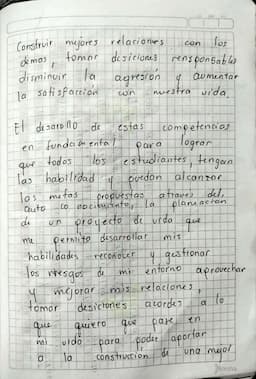 Construir mejores relaciones con los
demas, tomar desiciones responsables
disminuir la agresión y aumentar
la satisfacción con nuestra vida.
El desarollo de estas competencias
en fundamental para lograr
que todos los estudiantes, tengan
las habilidad y puedan alcanzar
las metas propuestas atraves del,
auto conocimiento, la planeación
de un proyecto de vida que
me permita desarrollar mis
habilidades reconocer y gestionar
los riesgos de mi entorno aprovechar
y mejorar mis relaciones,
tomar desiciones acordes a lo
que quiero que pase en
mi vida para poder aportar
a la construcion de una mejor